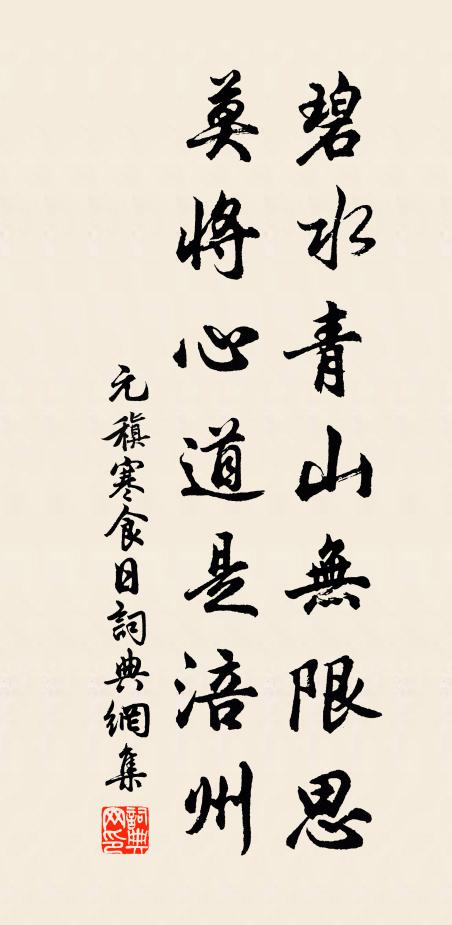 碧水青山無限思
莫將心道是涪州
元稹寒食日詞典網集
詞典
网印